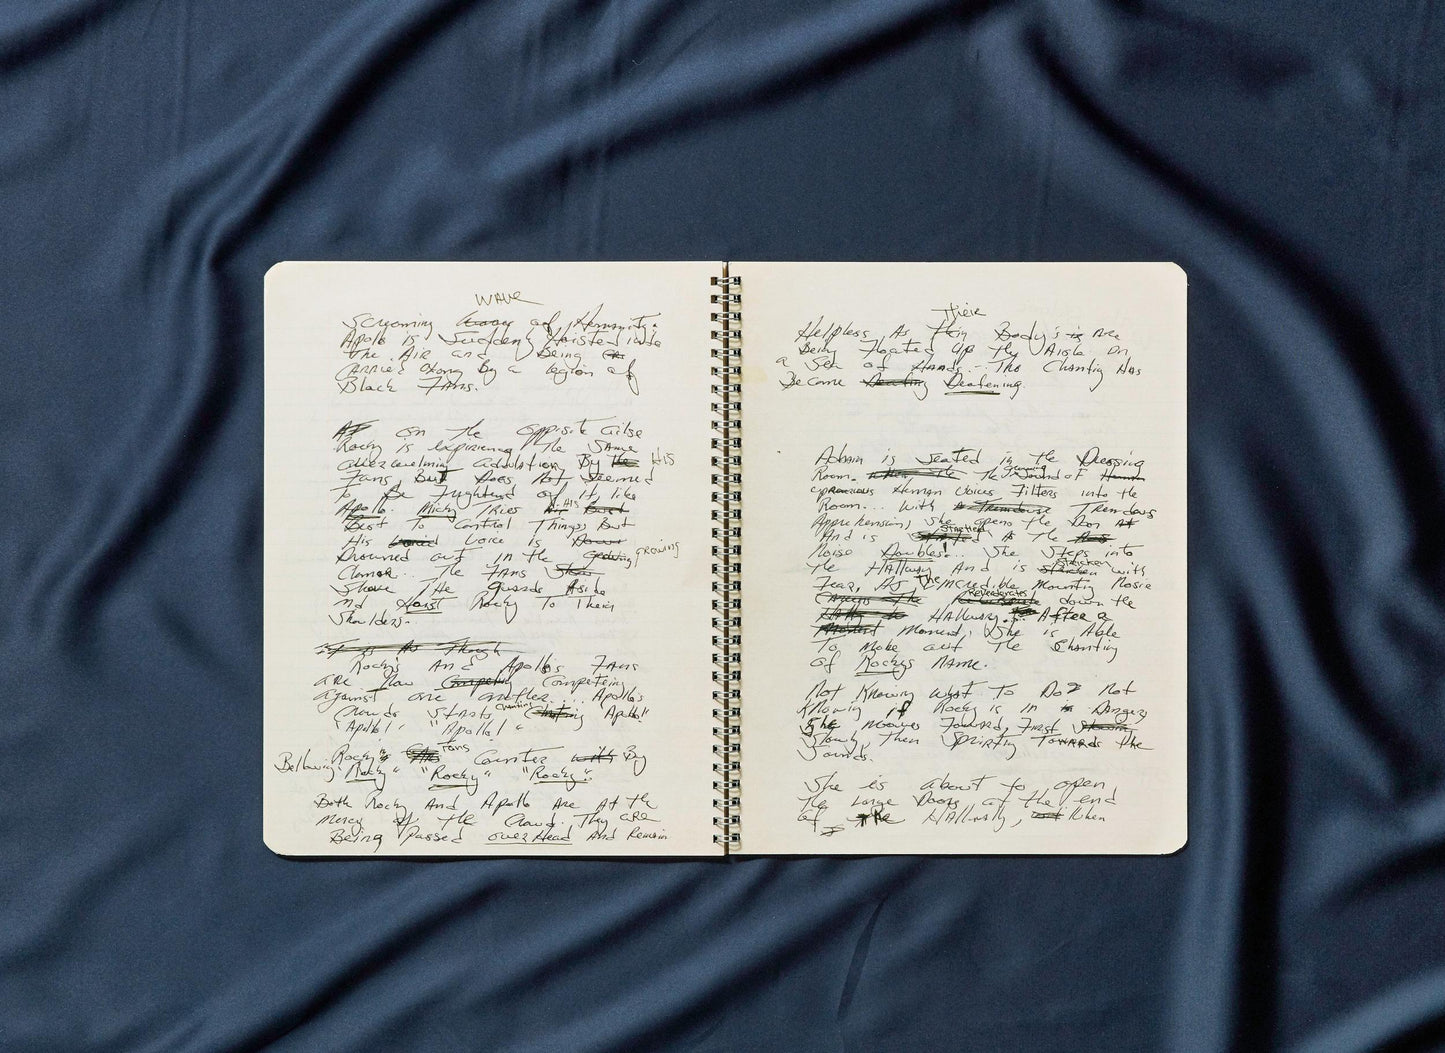 wave
Screaming of Humanity.
Apollo is Suddenly Hoisted into
The Air and Being
CARRIED Along By a legion of
Black FANS.
on The opposite
Rocky is Experiencing The Same
overwhelming adulation By HIS
Fans But Does Not Seemed
To Be Frightend of it, like
Apollo. Micky TRIES HIS
Best To Control Things, But
His Voice is
Drowned out in the growing GROWING
Clamor... The FANS
Shove The guards Aside
And Hoist Rocky To Their
Shoulders..
It is As Though
Rocky's And Apollo's FANS
are Now Competing
against one another... Apollo's
Crowds Starts Chanting Apollo!
"Apollo! "Apollo! "
Rocky's Fans Counter with By
Bellowing "Rocky" "Rocky" "Rocky"..
Both Rocky And Apollo Are At the
mercy of the Crowd. They are
Being passed over Head And Remain
Their
Helpless As They Body's is Are
Being Floated Up the Aisle on
a Sea of HANDS... The Chanting Has
Become Deafening.
Adrain is Seated in the Dressing
Room. The Sound of
Human Voices Filters into the
Room... With Tremdous
Apprehension, She opens the Door
And is Startled As The
Noise Doubles!... She Steps into
The HAllway And is Stricken with
Fear, As The Incredible Mounting Nosie
Reverberates down the
HAllway... After a
Moment Moment, She is Able
To Make out The Chanting
of Rockys NAME.
Not Knowing What To Do? Not
Knowing if Rocky is in Danger,
She Moves Forward, First
Slowly, Then Sprinting Towards The
Sounds.
She is about to open
The Large Doors at the end
of The HAllway, When